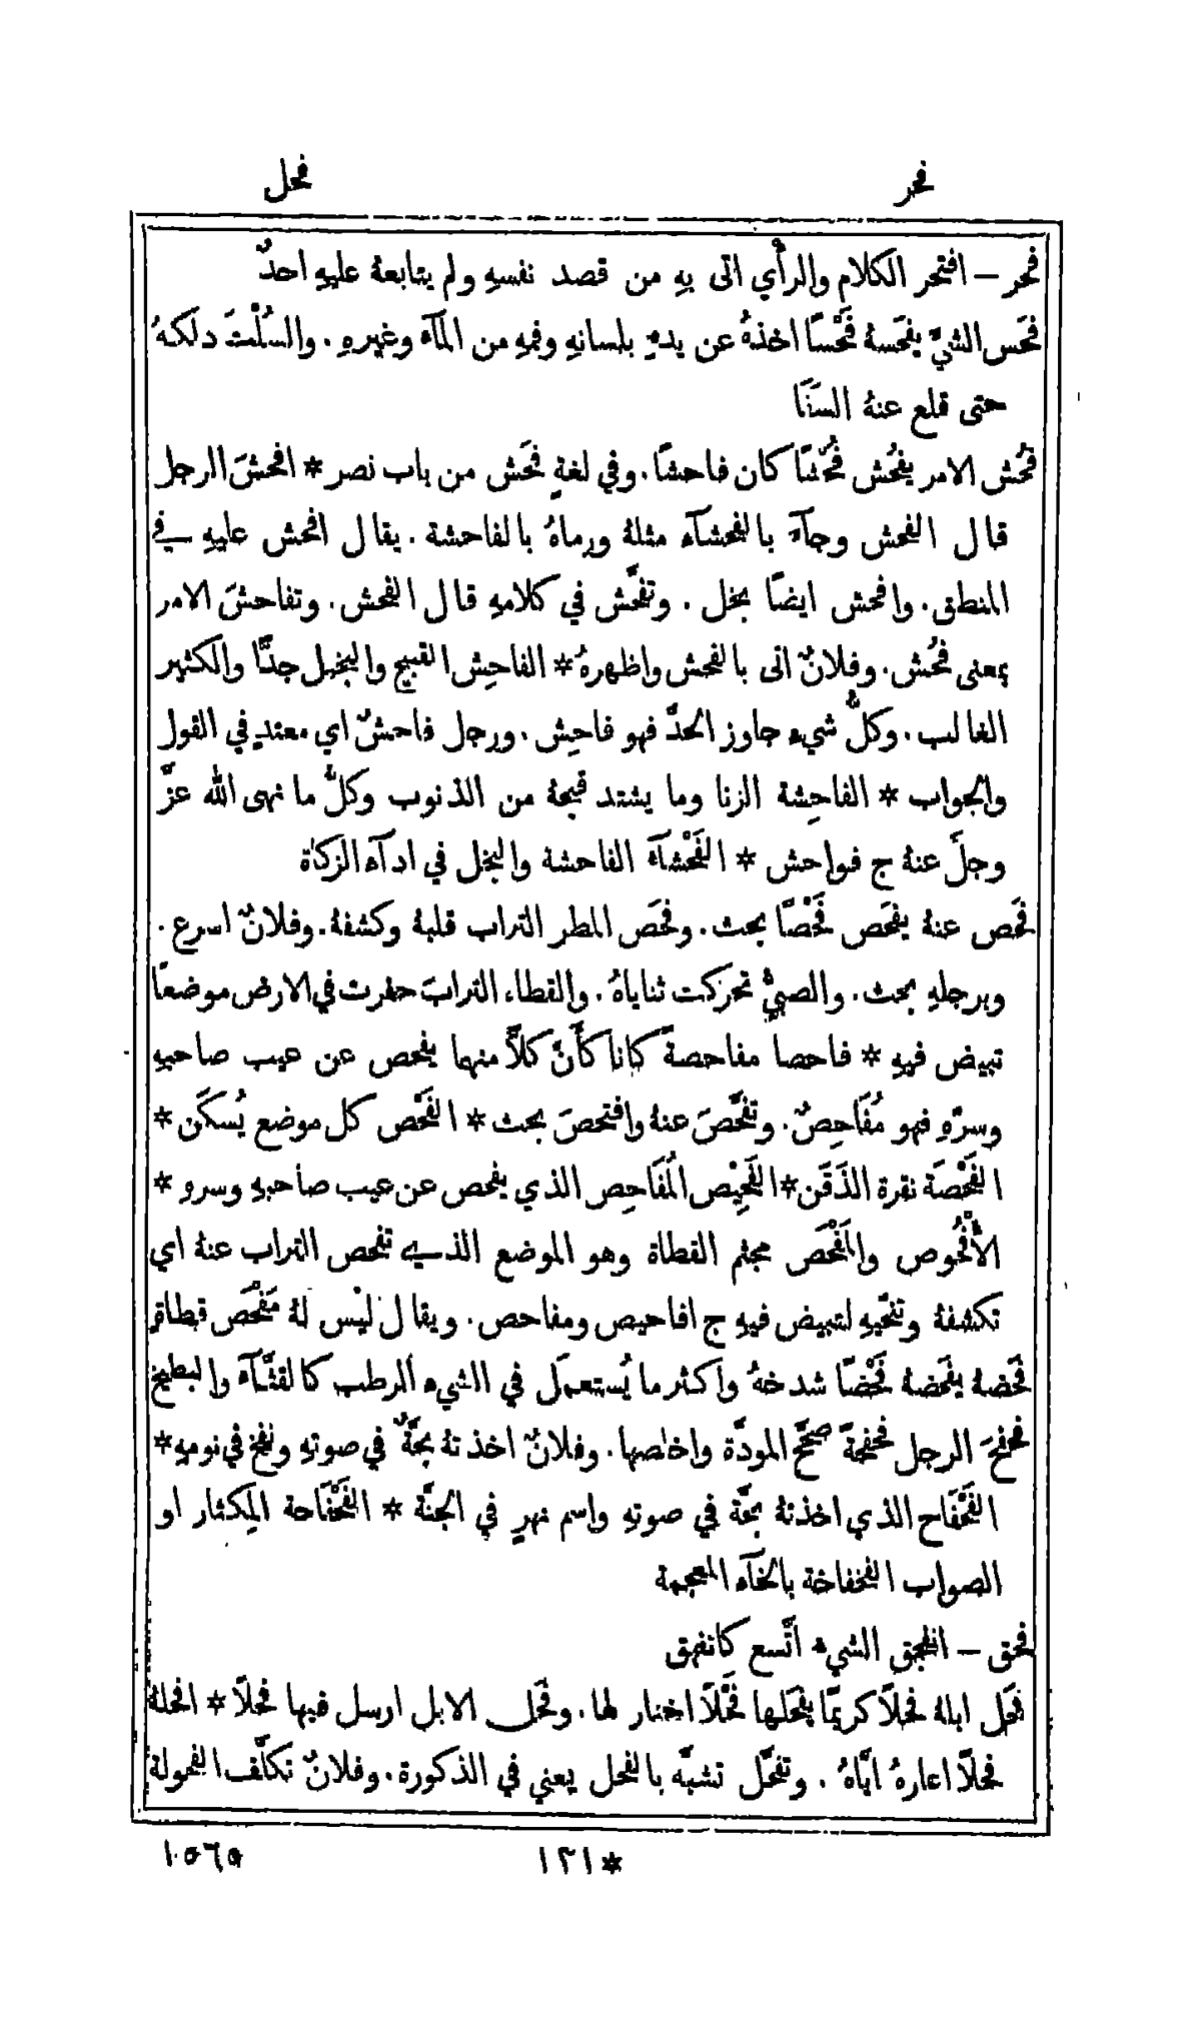 فحر
فحل
فحر — افتحر الكلام والرأي اتى بهِ من قصد نفسهِ ولم يتابعهُ عليهِ احدٌ
فحَس الشيَّ يفحَسهُ فَحْسًا اخذهُ عن يدهِ بلسانهِ وفمهِ من المآء وغيرهِ. والسُلْتَ دلكهُ
حتى قلع عنهُ السَنَا
فحُش الامر يفحُش فُحْشًا كان فاحشًا. وفي لغةٍ فحَش من باب نصر * افحشَ الرجل
قال الفحش وجآءَ بالفحشآء مثلهُ ورماهُ بالفاحشة. يقال افحش عليهِ في
المنطق. وافحش ايضًا بخل. وتفحَّش في كلامهِ قال الفحش. وتفاحشَ الامر
بمعنى فحُش. وفلانٌ اتى بالفحش واظهرهُ * الفاحِش القبيح والبخيل جدًّا والكثير
الغالب. وكلُّ شيء جاوز الحدَّ فهو فاحِش. ورجل فاحشٌ اي معتدٍ في القول
والجواب * الفاحِشة الزنا وما يشتد قبحهُ من الذنوب وكلُّ ما نهى الله عزَّ
وجلَّ عنهُ ج فواحش * الفَحْشآء الفاحشة والبخل في ادآء الزكاة
فحَص عنهُ يفحَص فَحْصًا بحث. وفحَص المطر التراب قلبهُ وكشفهُ. وفلانٌ اسرع.
وبرجلهِ بحث. والصبيُّ تحركت ثناياهُ. والقطاء الترابَ حفرت في الارض موضعًا
تبيض فيهِ * فاحصا مفاحصةً كانا كأَنَّ كلاًّ منهما يفحص عن عيب صاحبهِ
وسرّهِ فهو مُفَاحِصٌ. وتفحَّصَ عنهُ وافتحصَ بحث * الفَحْص كل موضع يُسكَن *
الفَحْصَة نقرة الذَقَن * الفَحِيْص المُفَاحِص الذي يفحص عن عيب صاحبهِ وسرهِ *
الأُفْحُوص والمَفْحَص مجثم القطاة وهو الموضع الذي تفحص التراب عنهُ اي
تكشفهُ وتنحّيهِ لتبيض فيهِ ج افاحيص ومفاحص. ويقال ليْس لهُ مَفْحَص قطاةٍ
فحَضهُ يفحَضهُ فَحْضًا شدخهُ واكثر ما يُستعمَل في الشيء الرطب كالقثَّآء والبطيخ
فحفحَ الرجل فحفحةً صحَّح المودَّة واخلصها. وفلانٌ اخذتهُ بحَّةٌ في صوتهِ ونفخ في نومهِ *
الفَحْفَاح الذي اخذتهُ بحَّة في صوتهِ واسم نهرٍ في الجنَّة * الفَحْفَاحة المِكثار او
الصواب الفخفاخة بالخآء المعجمة
فحق — انفحق الشيء اتَّسع كانفهق
فحَل ابلهُ فحلًا كريمًا يفحَلها فَحْلًا اختار لها. وفحَل الابل ارسل فيها فحلًا * افحلهُ
فحلًا اعارهُ ايَّاهُ. وتفحَّل تشبَّه بالفحل يعني في الذكورة. وفلانٌ تكلَّف الفحولة
*١٢١
١٥٦٥